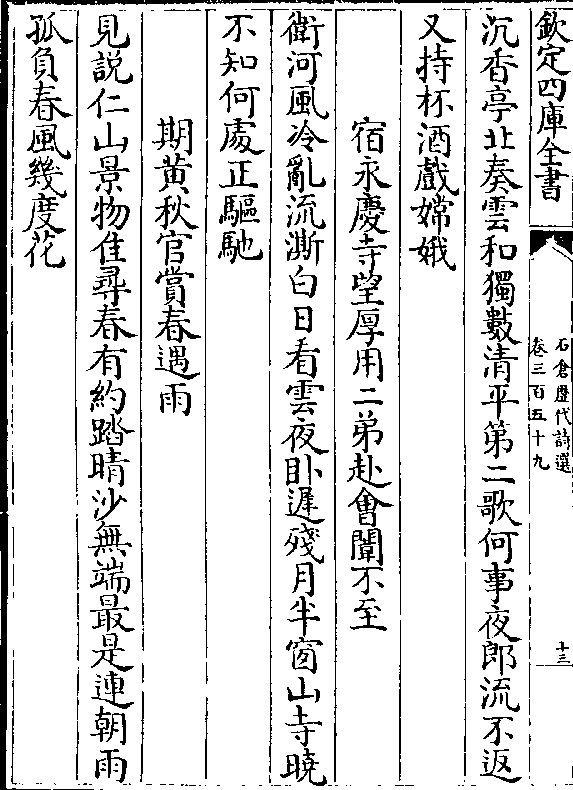 欽定四庫全書
石倉歷代詩選
卷三百五十九
十三
沉香亭北奏雲和獨數清平第二歌何事夜郎流不返
又持杯酒戲嫦娥
宿永慶寺望厚用二弟赴會闈不至
衛河風冷亂流澌白日看雲夜卧遲殘月半窗山寺曉
不知何處正驅馳
期黄秋官賞春遇雨
見説仁山景物佳尋春有約踏晴沙無端最是連朝雨
孤負春風幾度花